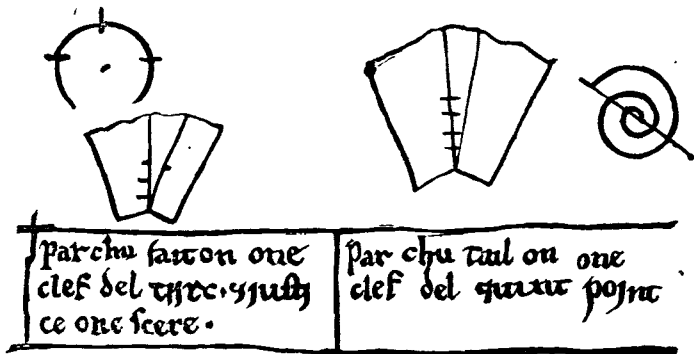 par chu fait on one
clef del tirc · ⁊ iusti
ce one scere ·
par chu tail on one
clef del quint point